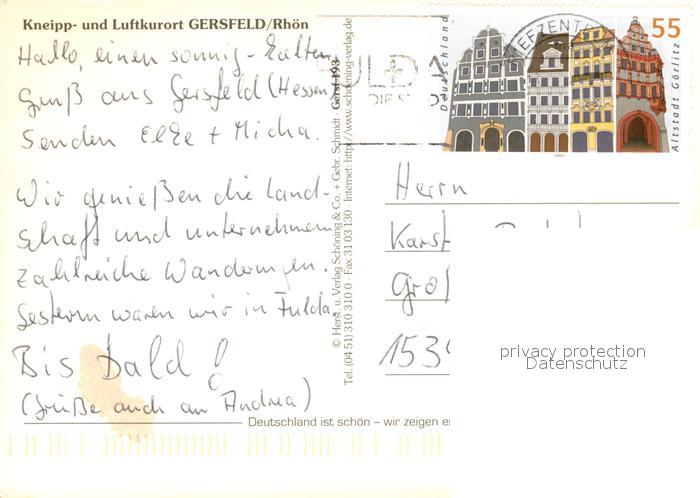 Kneipp- und Luftkurort GERSFELD/Rhön
Hallo, einen sonnig-kalten
Gruß aus Gersfeld (Hessen
Senden Elke + Micha.
Wir genießen die Land-
schaft und unternehmen
zahlreiche Wanderungen.
Gestern waren wir in Fulda.
Bis bald!
(Grüße auch an Andrea)
© Herst. u. Verlag Schöning & Co. + Gebr. Schmidt
Tel. (04 51) 310 310 0 · Fax 31 03 130 · Internet: http://www.schoening-verlag.de
Gersf 193
ULDA
DIE
BRIEFZENTRUM
Deutschland
55
Altstadt Görlitz
2003
Herrn
Karst
Groß
1534
privacy protection
Datenschutz
Deutschland ist schön – wir zeigen es